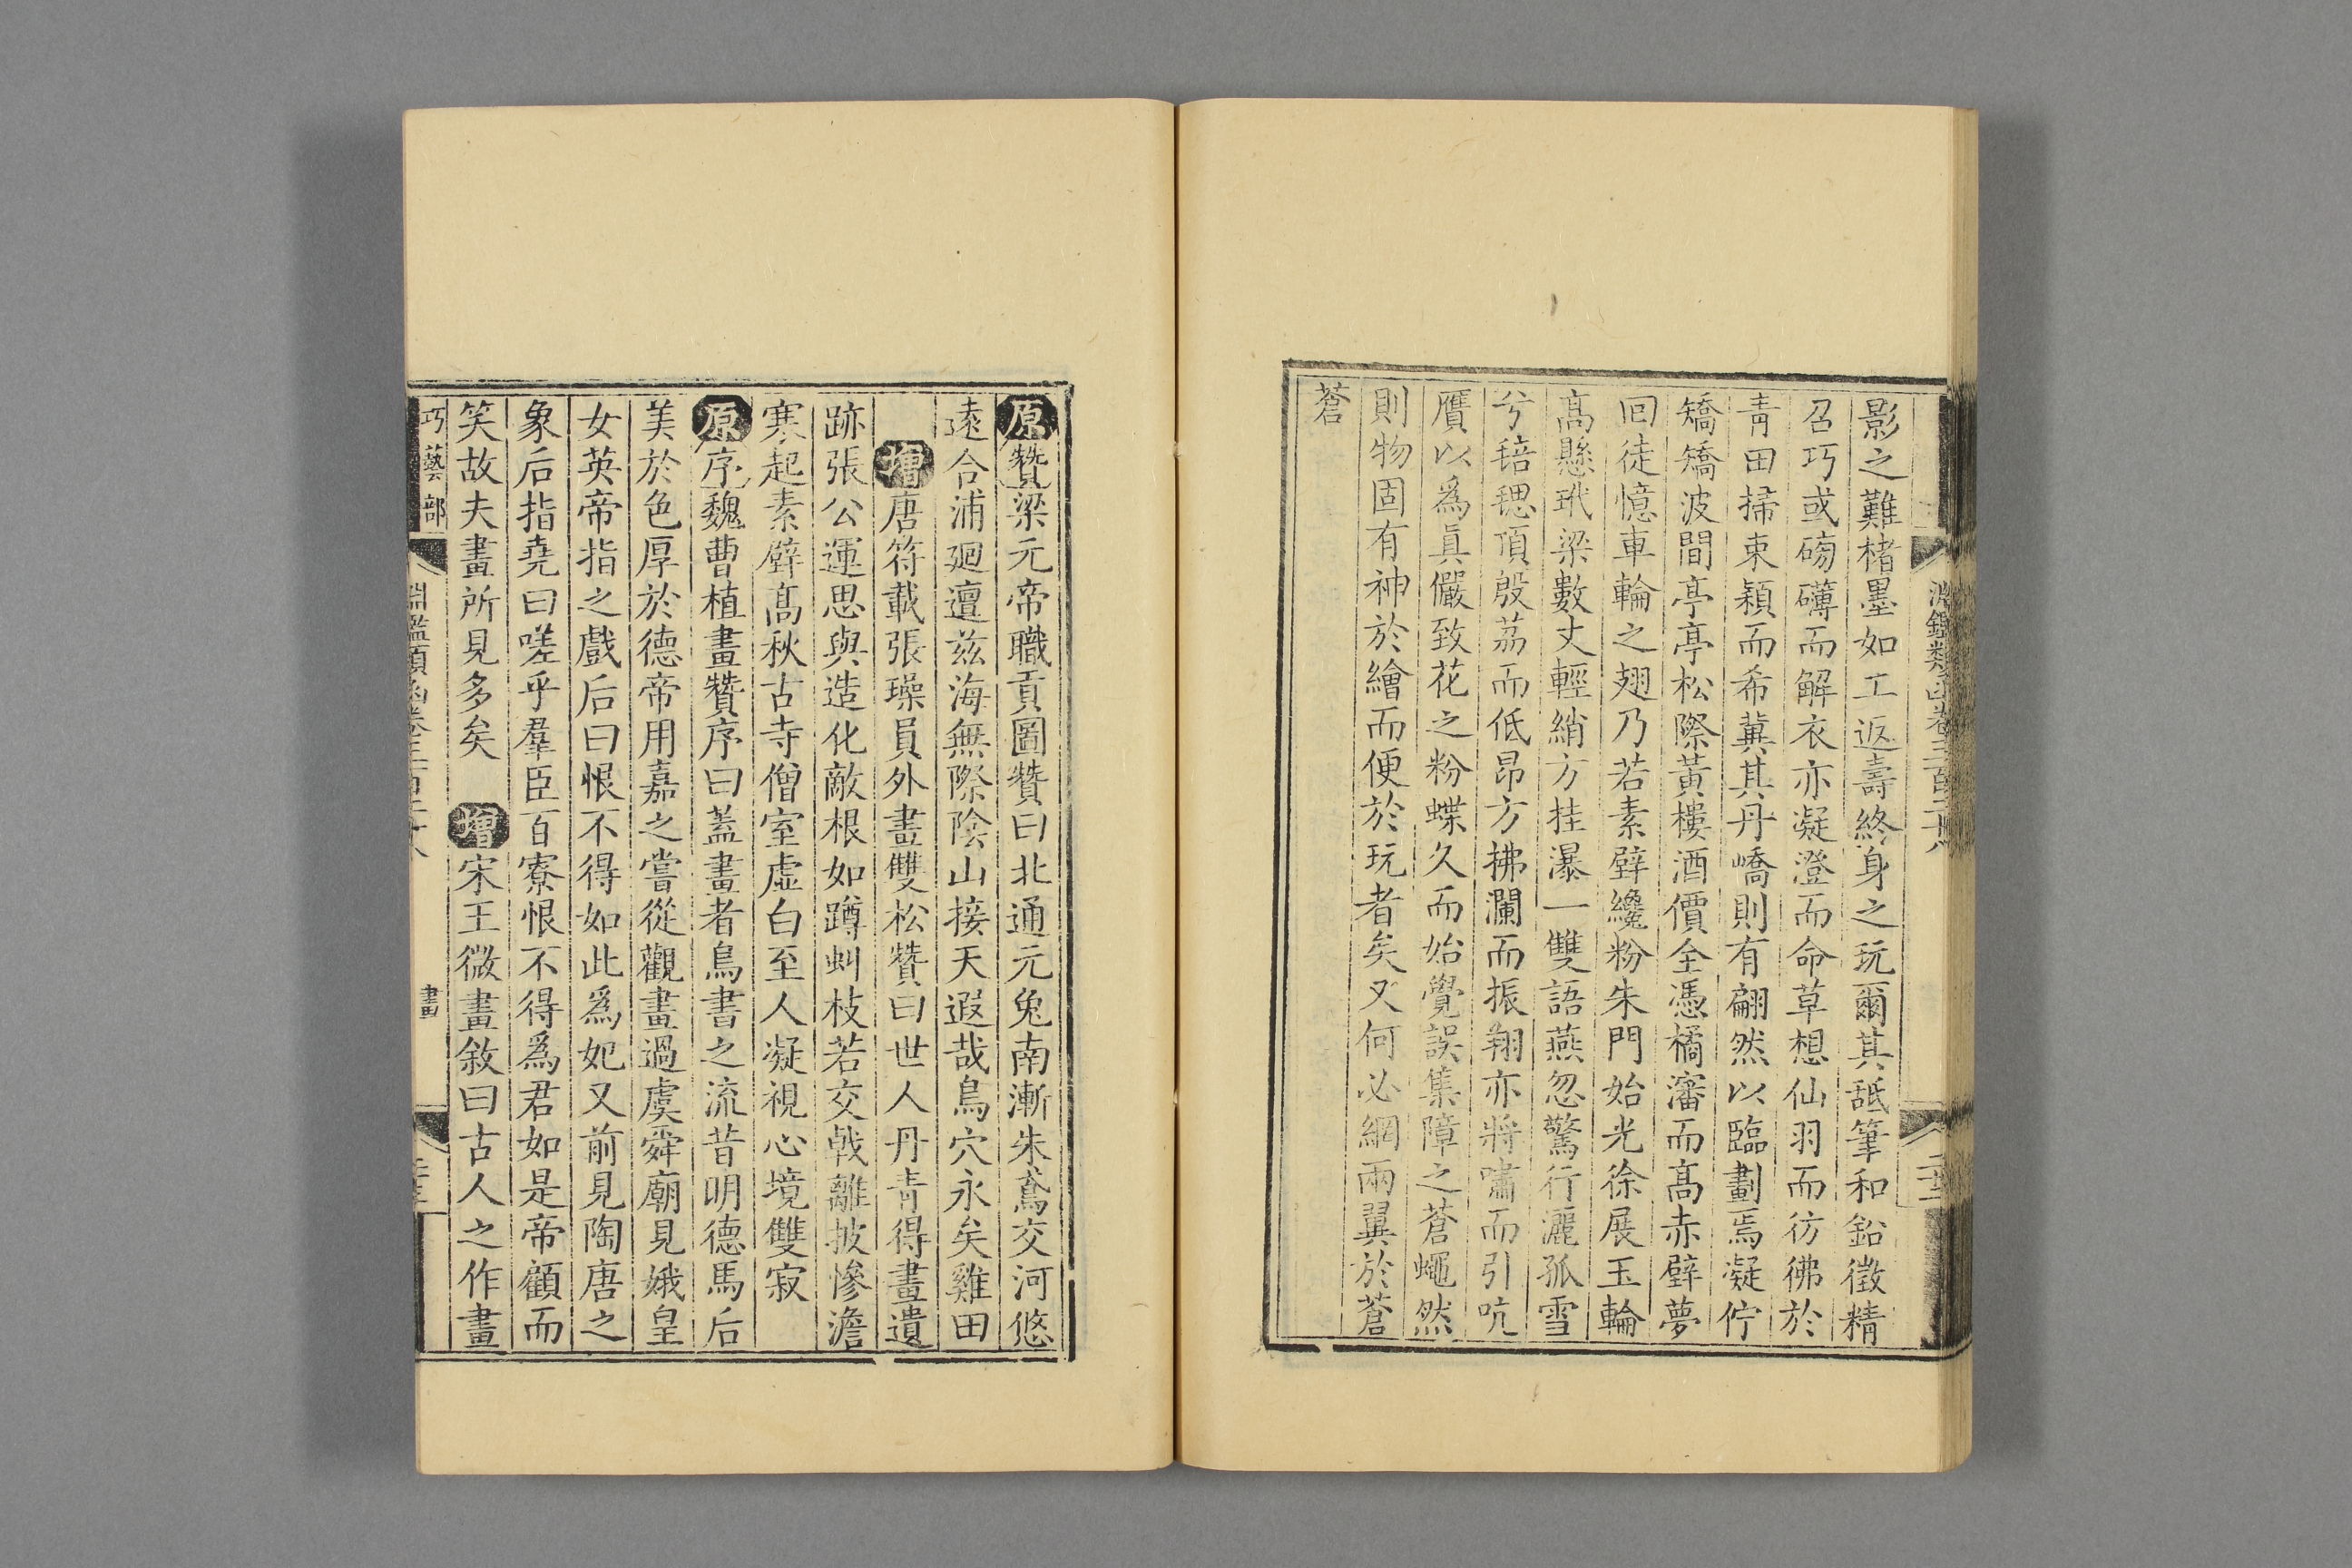 影之難楮墨如工返壽終身之玩爾其舐筆和鉛徵精
召巧或磅礴而解衣亦凝澄而命草想仙羽而彷彿於
青田掃束穎而希冀其丹嶠則有翩然以臨劃焉凝佇
矯矯波間亭亭松際黃樓酒價全憑橘瀋而高赤壁夢
回徒憶車輪之翅乃若素壁纔粉朱門始光徐展玉輪
高懸玳梁數丈輕綃方挂瀑一雙語燕忽驚行灑孤雪
兮毰毸頂殷荔而低昂方拂瀾而振翔亦將嘯而引吭
贗以爲眞儼致花之粉蝶久而始覺誤集障之蒼蠅然
則物固有神於繪而便於玩者矣又何必網兩翼於蒼
蒼
原贊梁元帝職貢圖贊曰北通元兔南漸朱鳶交河悠
遠合浦廻邅茲海無際陰山接天遐哉鳥穴永矣雞田
增唐符載張璪員外畫雙松贊曰世人丹青得畫遺
跡張公運思與造化敵根如蹲虯枝若交戟離披慘澹
寒起素壁高秋古寺僧室虛白至人凝視心境雙寂
原序魏曹植畫贊序曰蓋畫者鳥書之流昔明德馬后
美於色厚於德帝用嘉之嘗從觀畫過虞舜廟見娥皇
女英帝指之戲后曰恨不得如此爲妃又前見陶唐之
象后指堯曰嗟乎羣臣百寮恨不得爲君如是帝顧而
笑故夫畫所見多矣　增宋王微畫敘曰古人之作畫
巧藝部　淵鑑類函卷三百二十八　畫